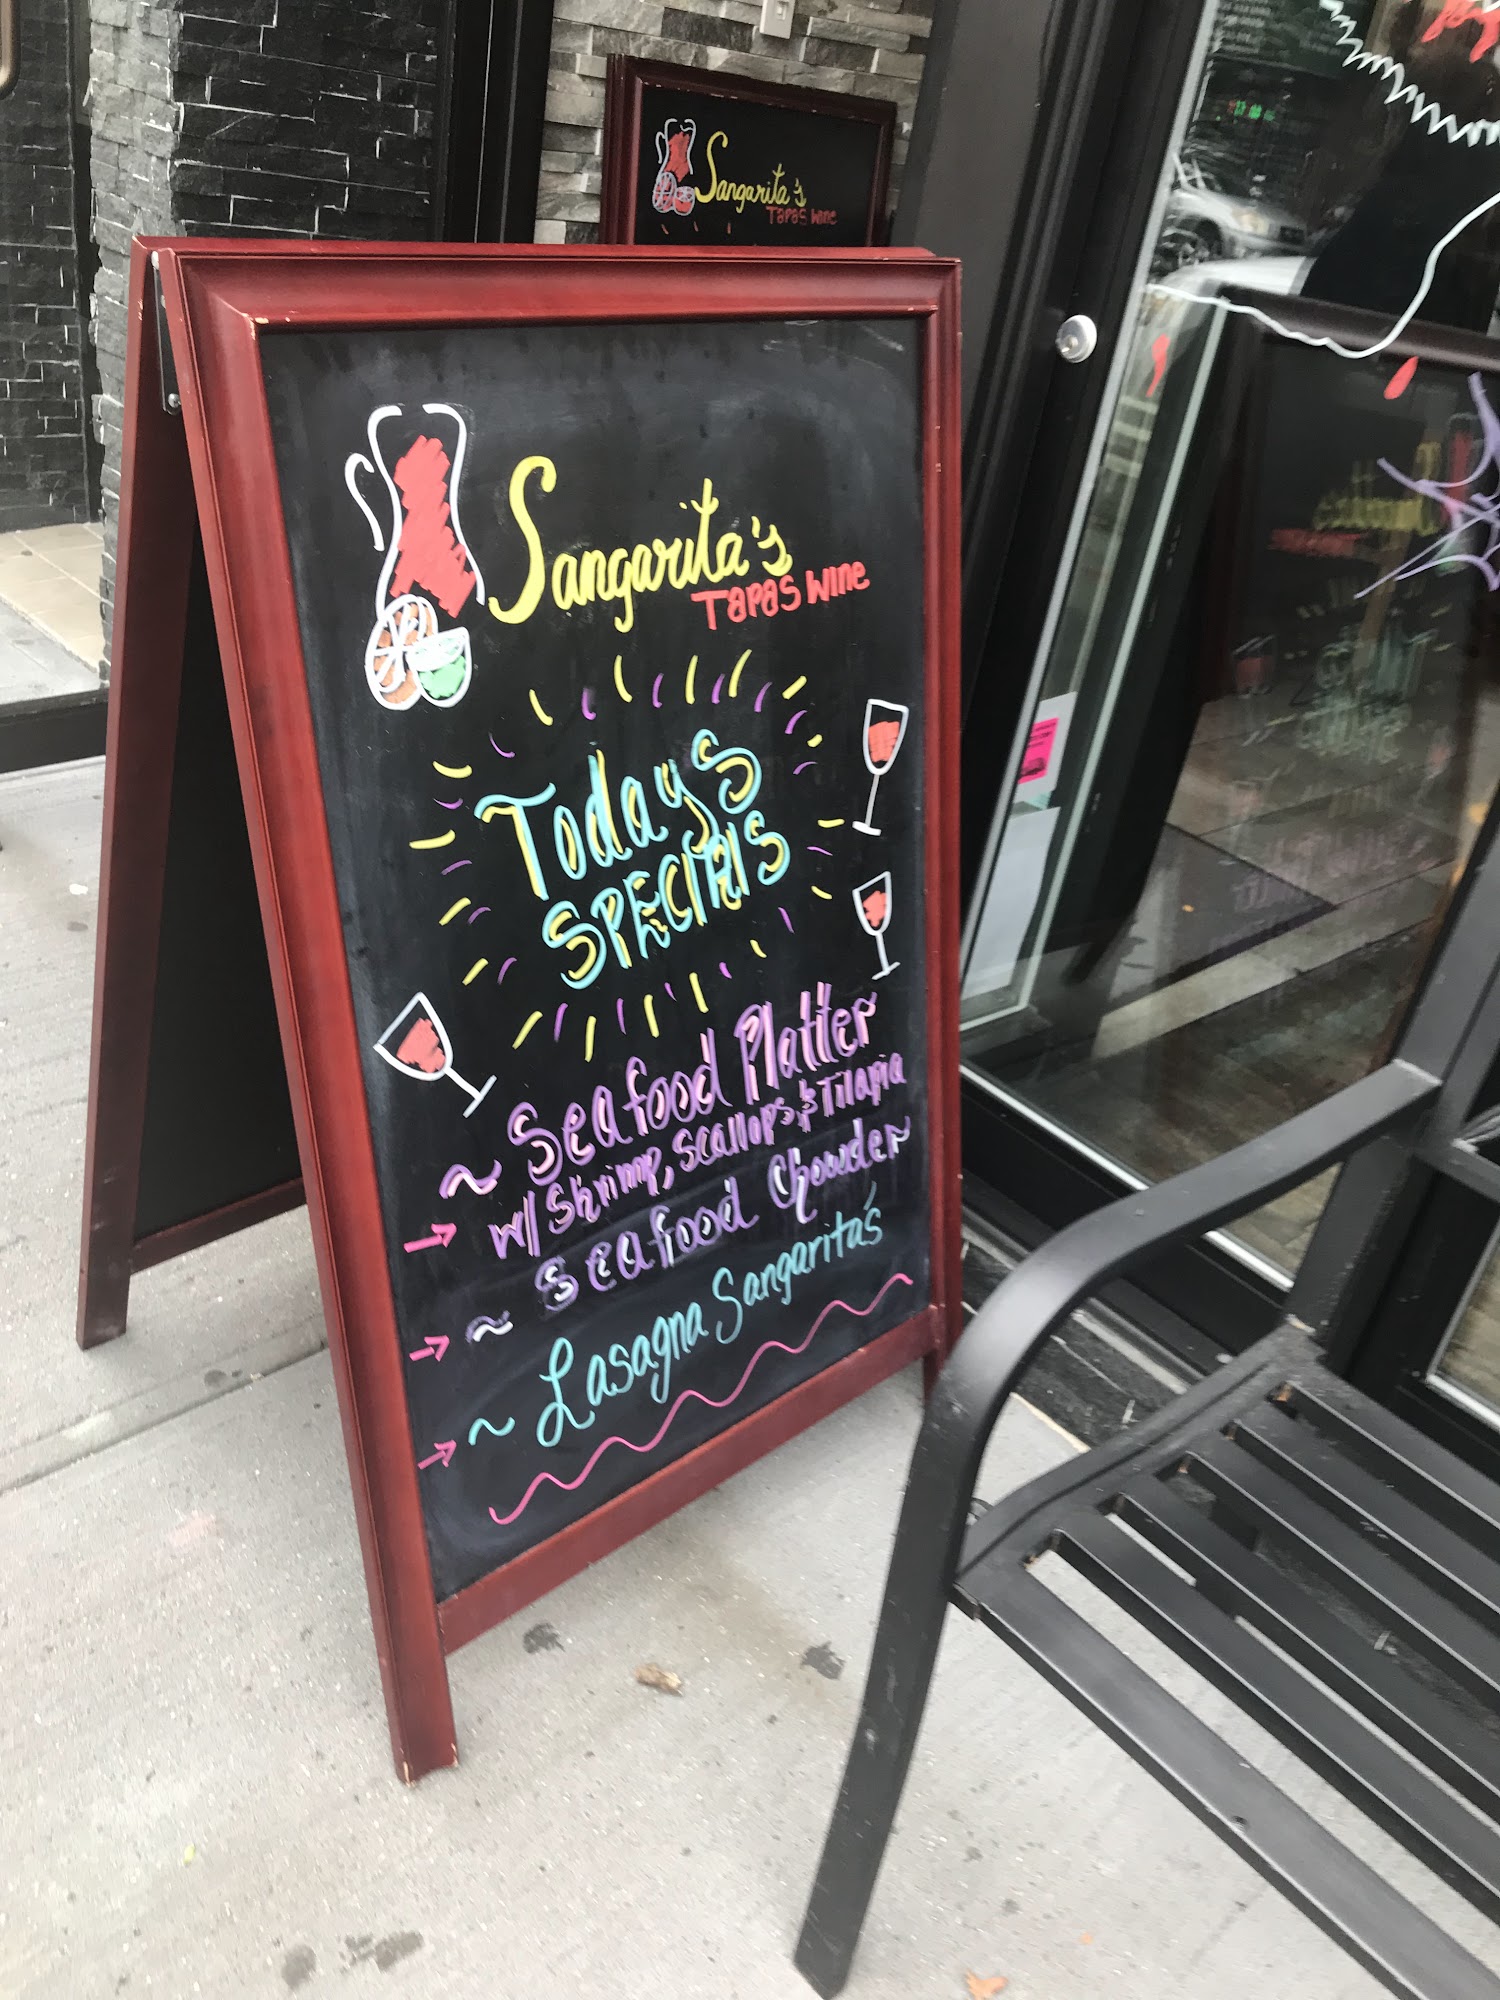 Sangarita's
TAPAS WINE
Sangarita's
TAPAS WINE
Todays
SPECIAlS
~ Seafood Platter
w/ Shrimp, scallops, & Tilapia
~ Seafood Chowder
~ Lasagna Sangarita's